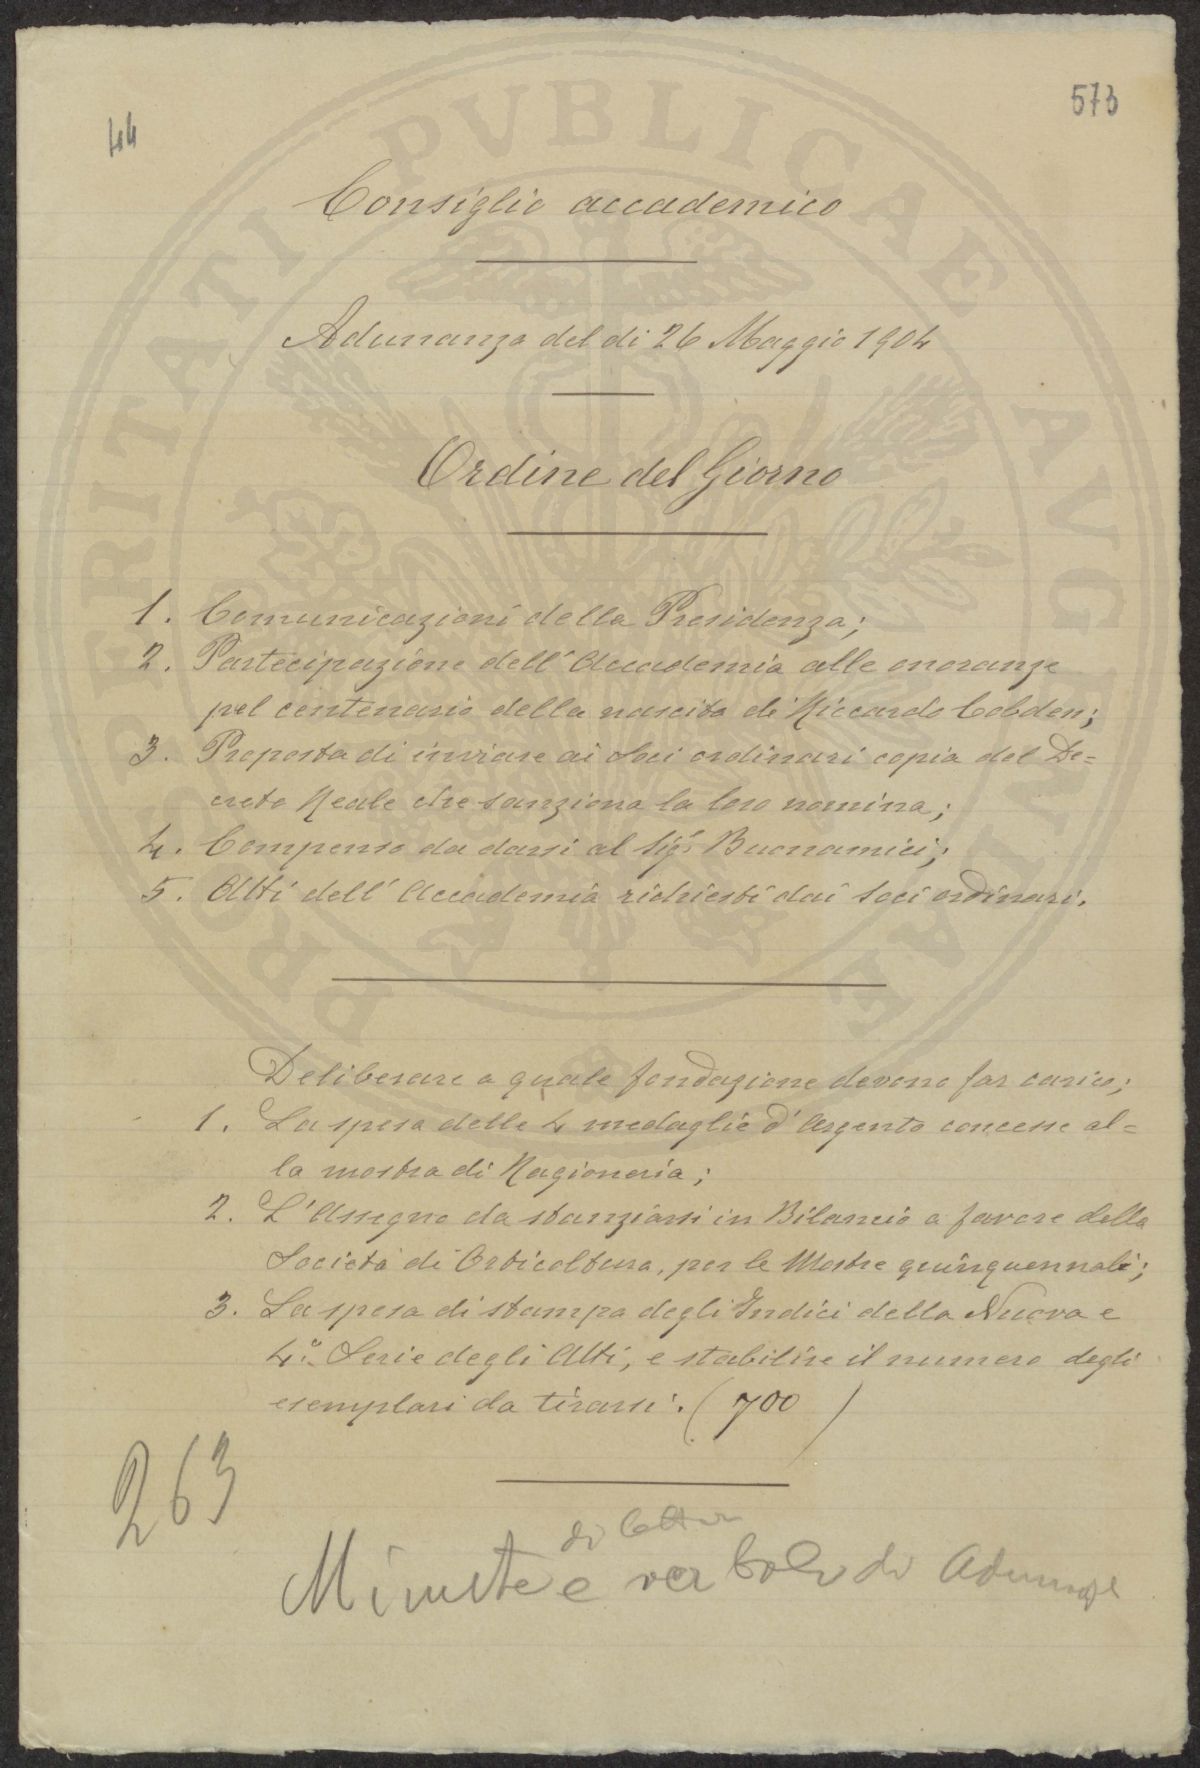 573
44
Consiglio accademico
Adunanza del dì 26 Maggio 1904
Ordine del Giorno
1. Comunicazioni della Presidenza;
2. Partecipazione dell'Accademia alle onoranze
pel centenario della nascita di Riccardo Cobden;
3. Proposta di inviare ai Soci ordinari copia del De=
creto Reale che sanziona la loro nomina;
4. Compenso da darsi al Sigr. Buonamici;
5. Atti dell'Accademia richiesti dai Soci ordinari.
Deliberare a quale fondazione devono far carico;
1. La spesa delle 4 medaglie d'Argento concesse al=
la mostra di Ragioneria;
2. L'Assegno da stanziarsi in Bilancio a favore della
Società di Orticoltura, per le Mostre quinquennali;
3. La spesa di stampa degli Indici della Nuova e
4a. Serie degli Atti, e stabilire il numero degli
esemplari da tirarsi. (700)
263
di lettere
Minute e verbali di Adunanze
PROSPERITATI PVBLICAE AVGENDAE